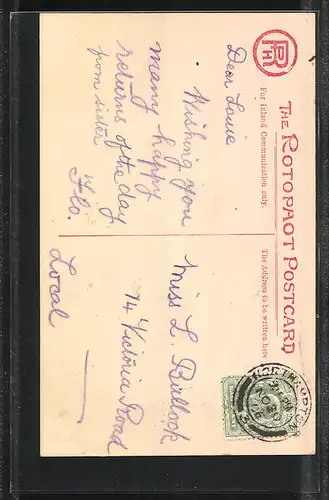 THE ROTOPHOT POSTCARD
For Inland Communication only.
The Address to be written here
RPH
Dear Louie
Wishing you
many happy
returns of the day
from sister
Flo.
Miss L. Bullock
74 Victoria Road
Local